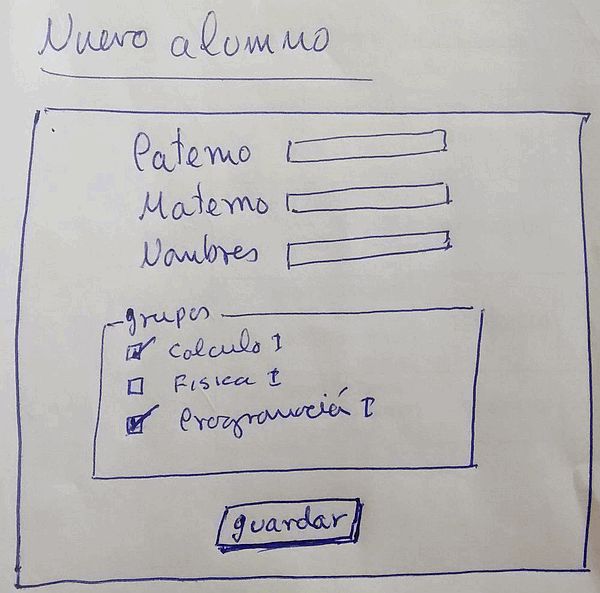 Nuevo alumno
Paterno
Materno
Nombres
grupos
Calculo I
Fisica I
Programació I
guardar